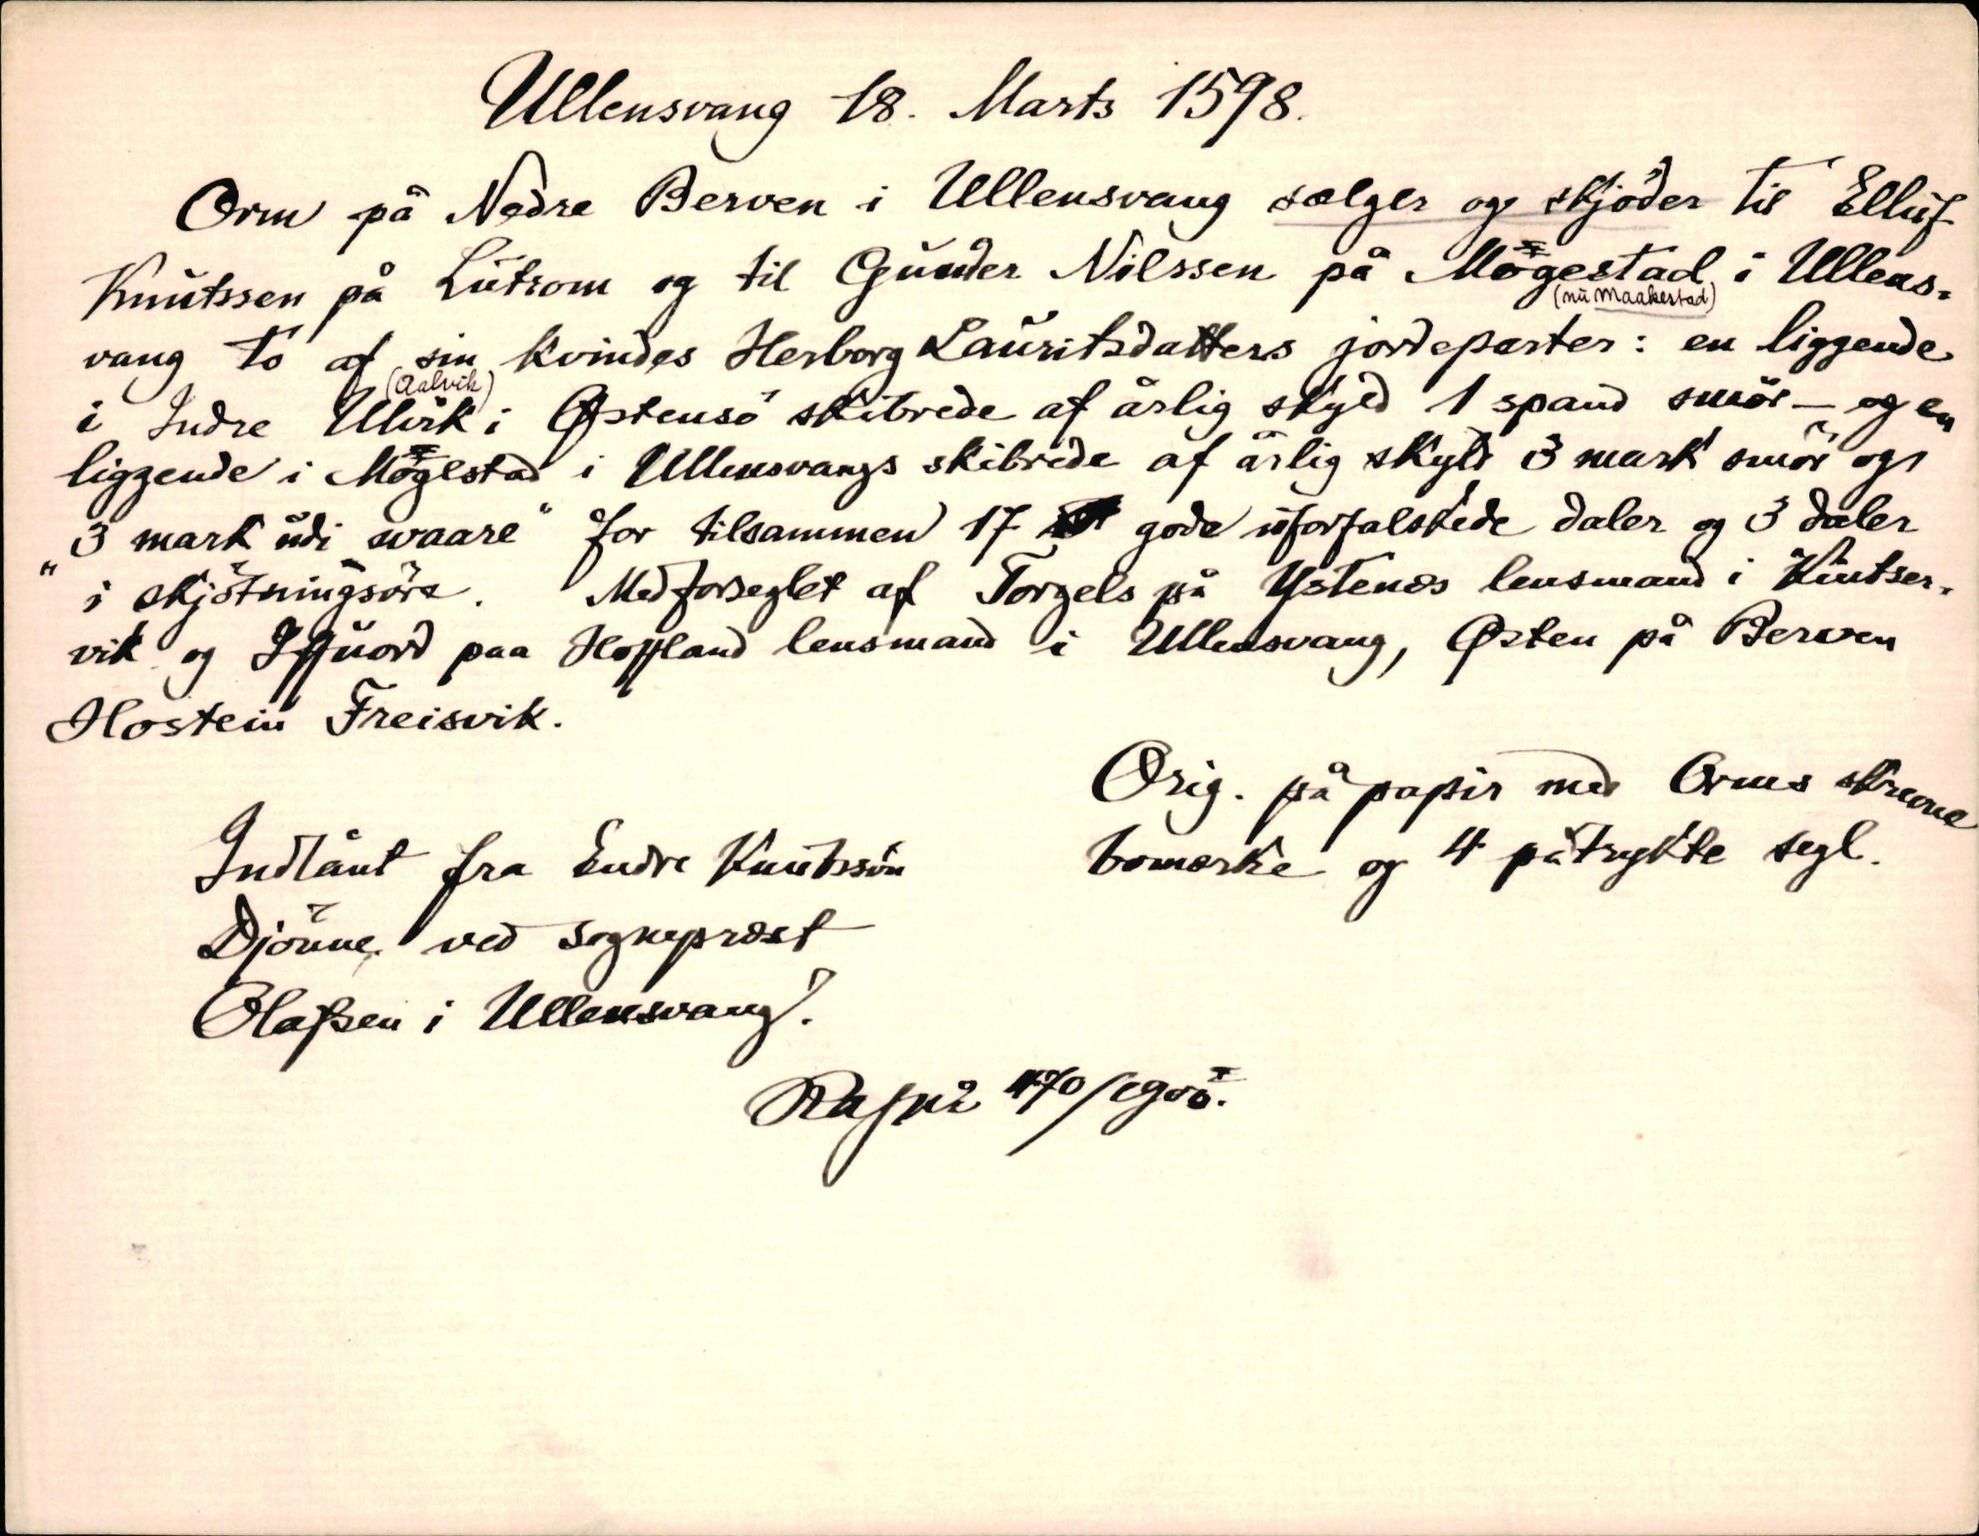 Ullensvang 18. Marts 1598.
Orm på Nedre Berven i Ullensvang sælger og skjøder til Elluf
Knutssen på Lutrom og til Gunder Nilssen på Møgestad i Ullens-
(nu Maakestad)
vang to af sin kvindes Herborg Lauritsdatters jordeparter: en liggende
(Aalvik)
i Indre Ulvik i Østensø skibrede af årlig skyld 1 spand smør – og en
liggende i Møgestad i Ullensvangs skibrede af årlig skyld 3 mark smør og
"3 mark udi waare" for tilsammen 17 gode uforfalskede daler og 3 daler
"i skjøtningsøre. Medforseglet af Torgels på Ystenes lensmand i Kintser-
vik og Iffuord paa Hoffland lensmand i Ullensvang, Østen på Berven
Hostein Freisvik.
Orig. på papir med Orms skrevne
bomærke og 4 påtrykte segl.
Indlånt fra Endre Knutssøn
Djønne ved sogneprest
Olafsen i Ullensvang.
470/1900.